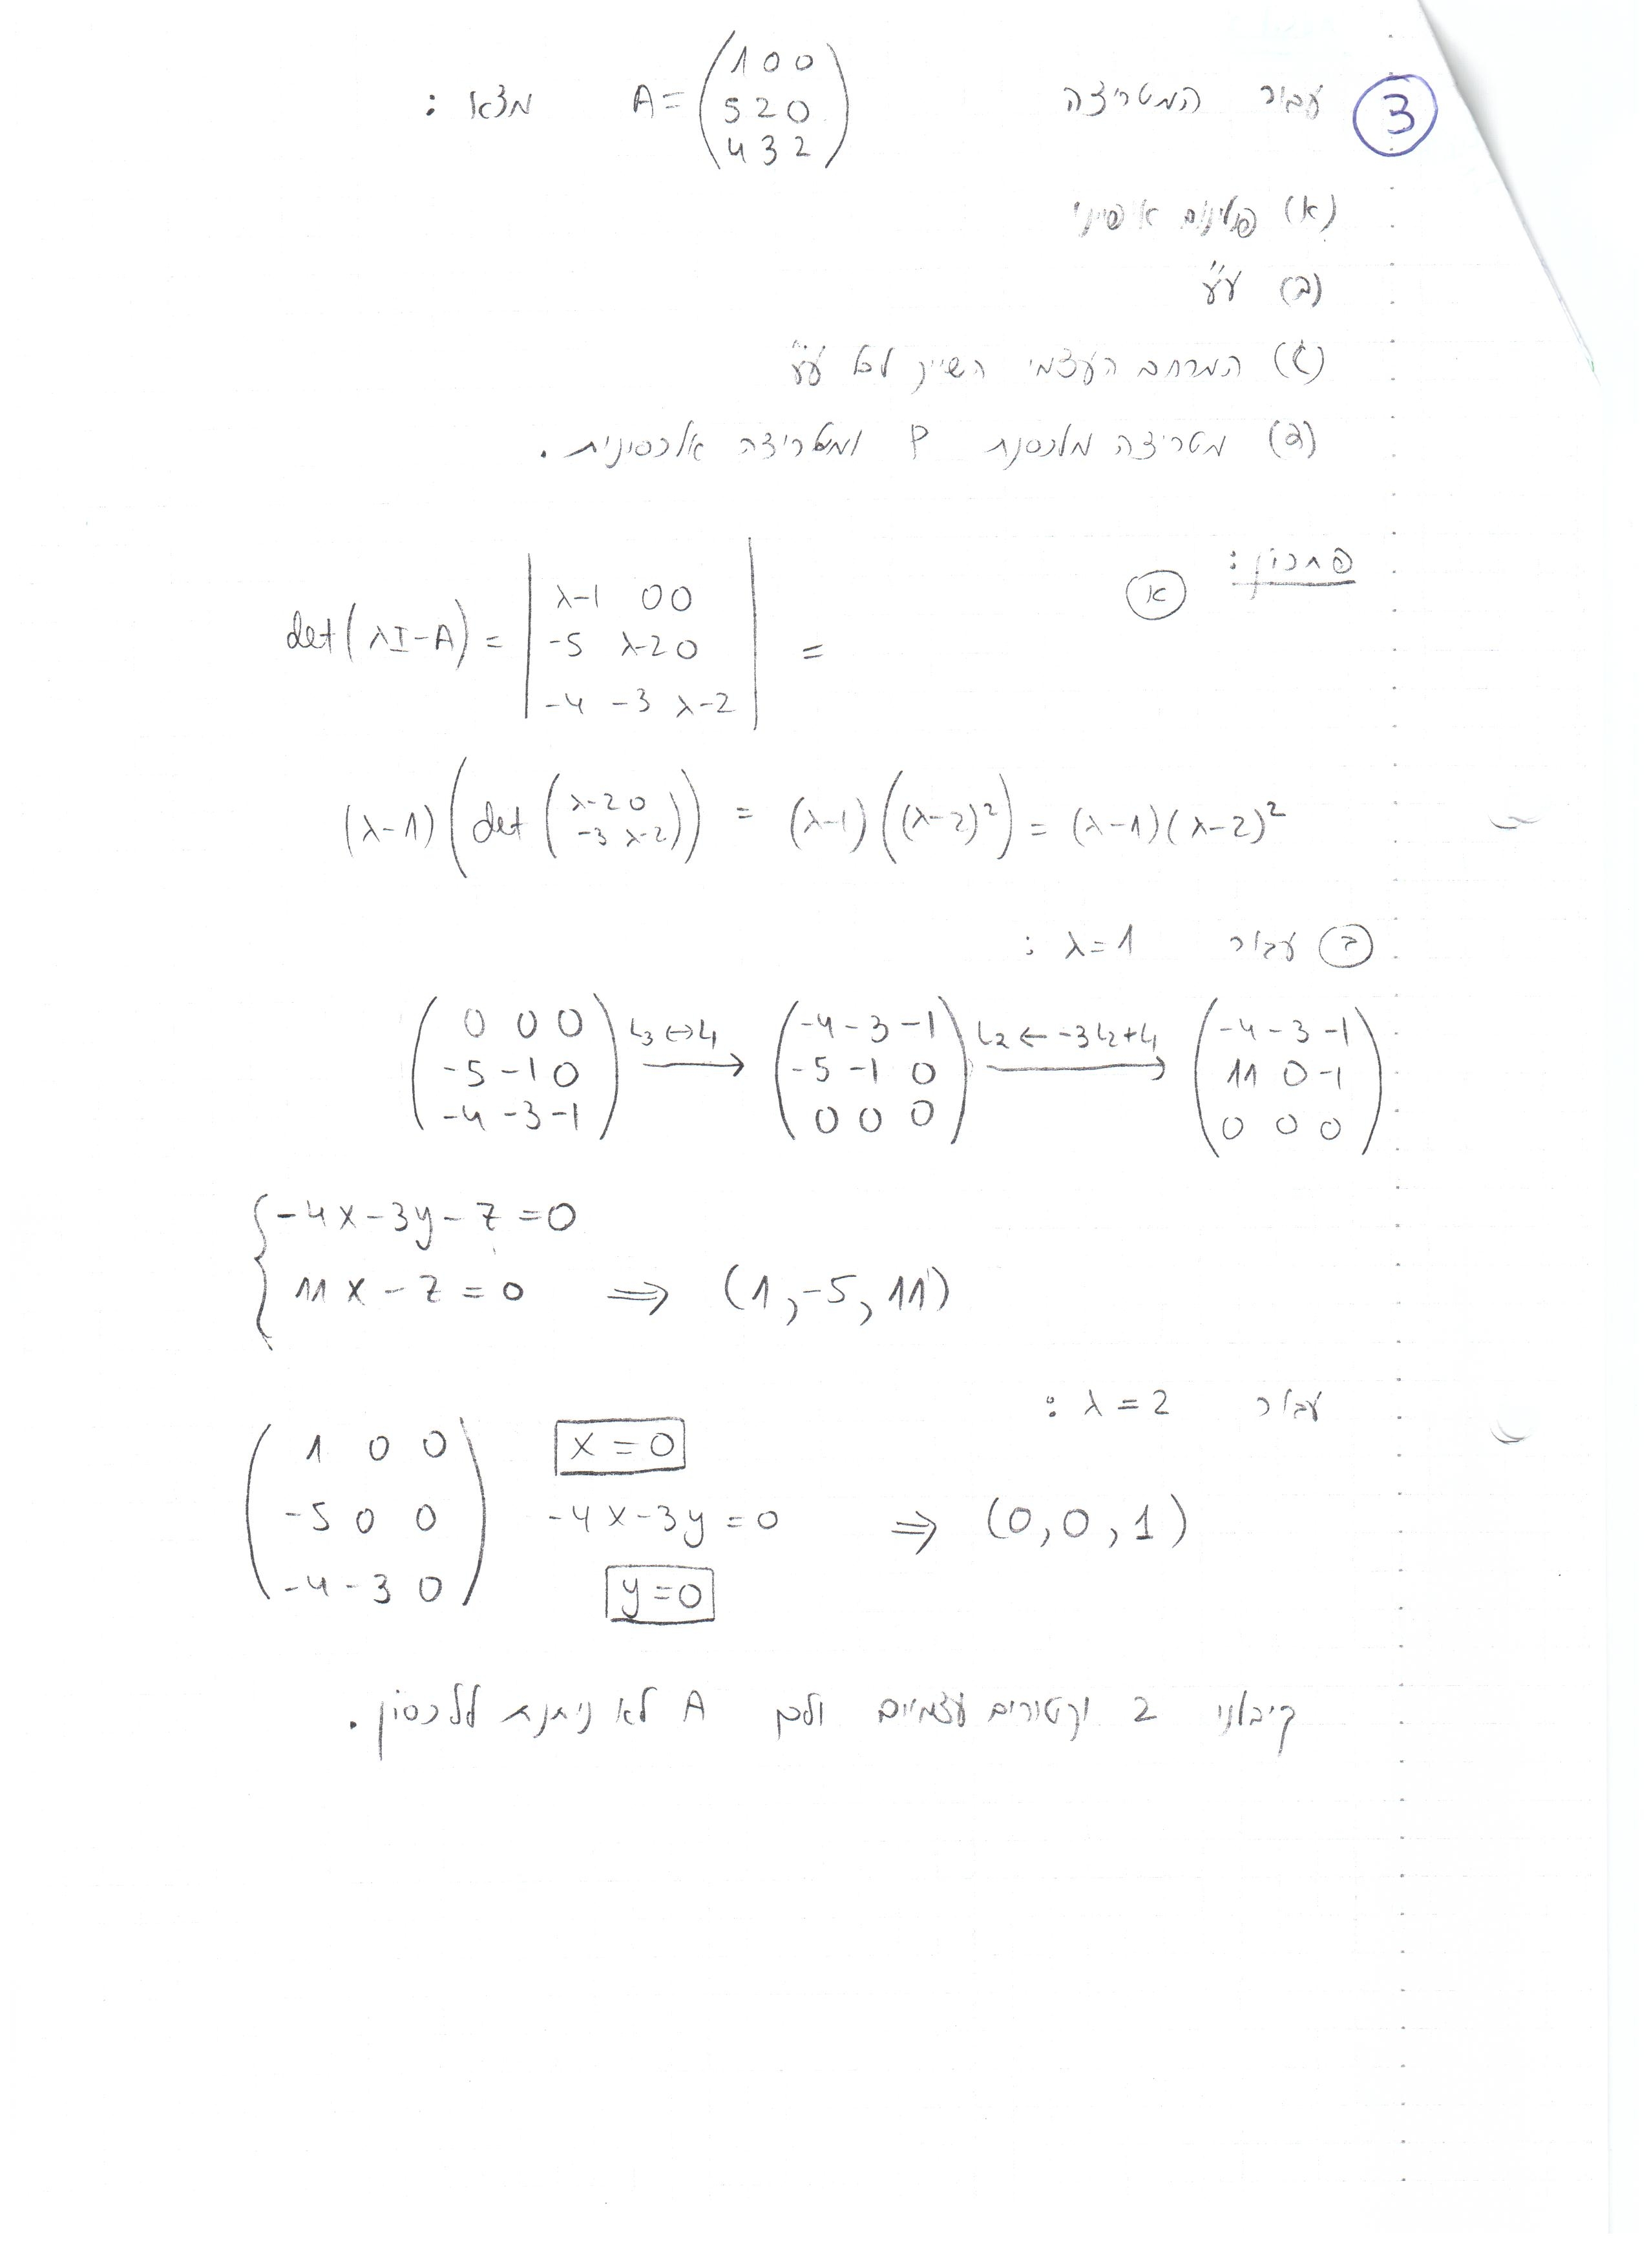 ③ עבור המטריצה A = (1 0 0 / 5 2 0 / 4 3 2) מצאו :
(א) פולינום אופייני
(ב) ע"ע
(ג) המרחב העצמי השייך לכל ע"ע
(ד) מטריצה מלכסנת P ומטריצה אלכסונית.
פתרון :
(א)
det(λI-A) = | λ-1 0 0 / -5 λ-2 0 / -4 -3 λ-2 | =
(λ-1)(det(λ-2 0 / -3 λ-2)) = (λ-1)((λ-2)²) = (λ-1)(λ-2)²
(ב) עבור λ=1 :
(0 0 0 / -5 -1 0 / -4 -3 -1) L₃↔L₁ → (-4 -3 -1 / -5 -1 0 / 0 0 0) L₂ ← -3L₂+L₁ → (-4 -3 -1 / 11 0 -1 / 0 0 0)
{ -4x-3y-z=0
11x-z=0 ⇒ (1,-5,11)
עבור λ=2 :
(1 0 0 / -5 0 0 / -4 -3 0)
x=0
-4x-3y=0 ⇒ (0,0,1)
y=0
קיבלנו 2 וקטורים עצמיים ולכן A לא ניתנת ללכסון.